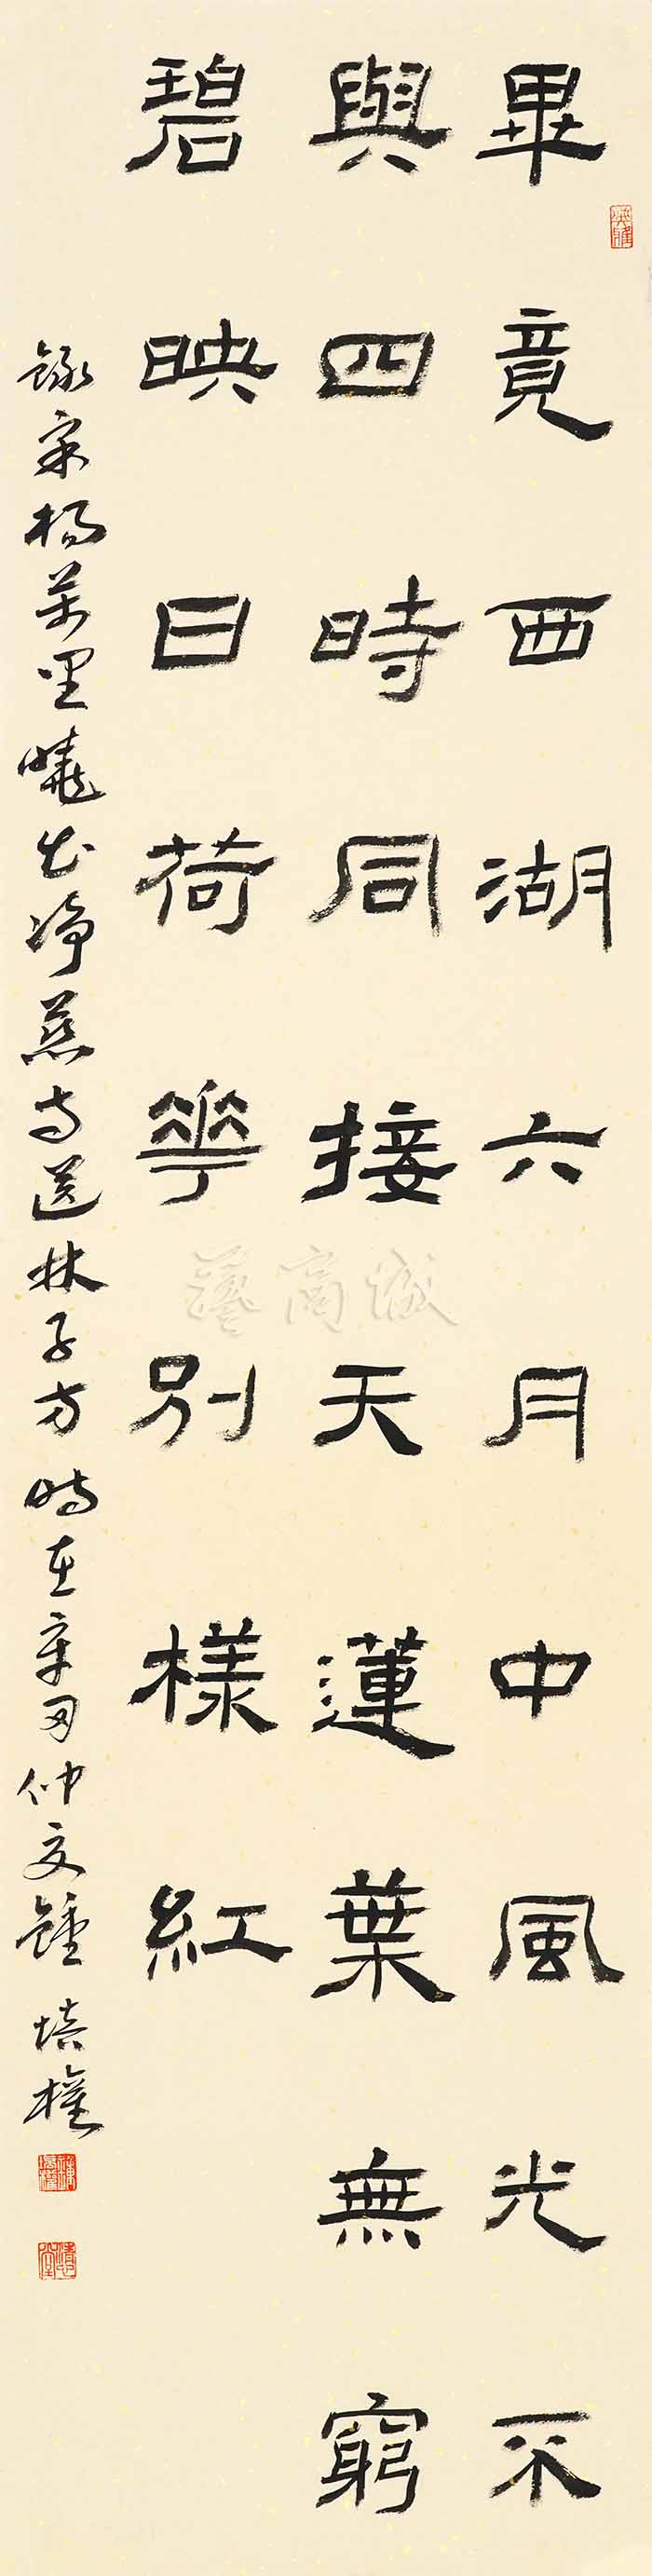 畢竟西湖六月中風光不
與四時同接天蓮葉無窮
碧映日荷華別樣紅
錄宋楊萬里曉出淨慈寺送林子方時在辛丑仲夏鍾培權
藝高城